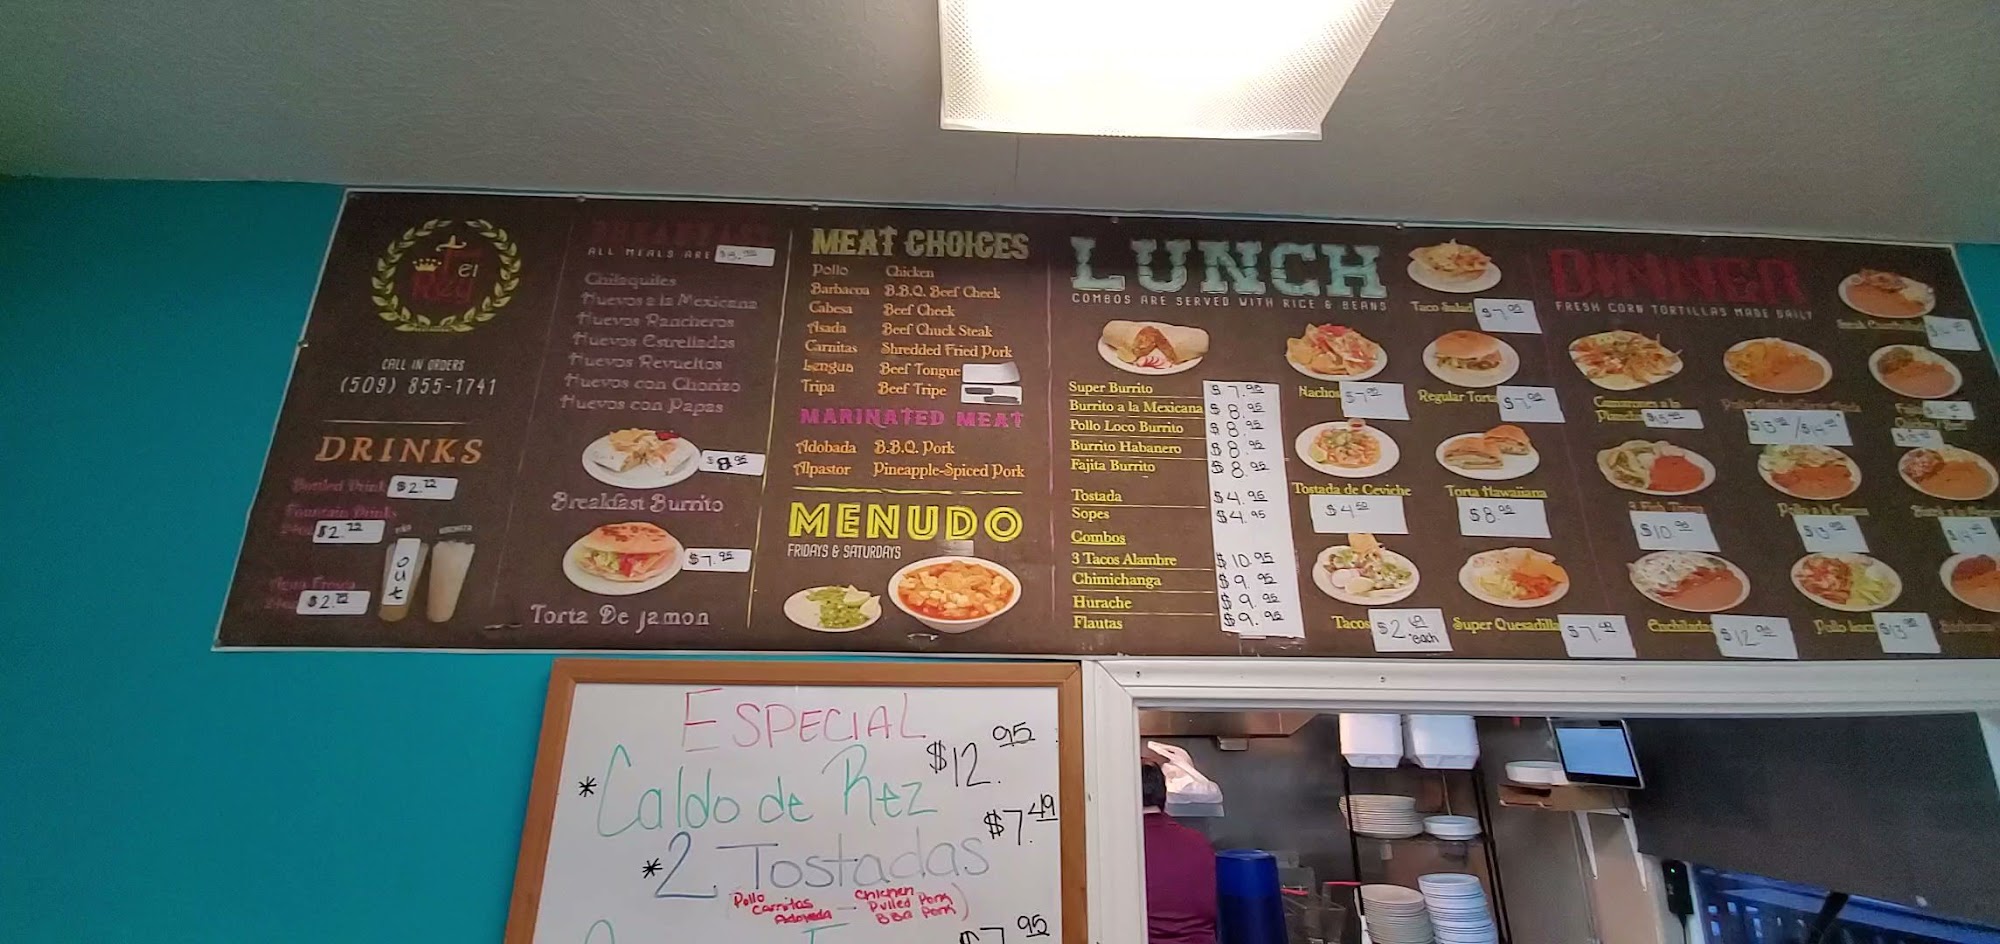 el
Rey
CALL IN ORDERS
(509) 855-1741
DRINKS
Bottled Drink $2.22
Fountain Drinks
$2.22
HORCHATA
out
Agua Fresca
$2.22
BREAKFAST
ALL MEALS ARE
Chilaquiles
Huevos a la Mexicana
Huevos Rancheros
Huevos Estrellados
Huevos Revueltos
Huevos con Chorizo
Huevos con Papas
$8.95
Breakfast Burrito
$7.95
Torta De jamon
MEAT CHOICES
Pollo Chicken
Barbacoa B.B.Q. Beef Cheek
Cabesa Beef Cheek
Asada Beef Chuck Steak
Carnitas Shredded Fried Pork
Lengua Beef Tongue
Tripa Beef Tripe
MARINATED MEAT
Adobada B.B.Q. Pork
Alpastor Pineapple-Spiced Pork
MENUDO
FRIDAYS & SATURDAYS
LUNCH
COMBOS ARE SERVED WITH RICE & BEANS
Super Burrito $7.95
Burrito a la Mexicana $8.95
Pollo Loco Burrito $8.95
Burrito Habanero $8.95
Fajita Burrito $8.95
Tostada $4.95
Sopes $4.95
Combos
3 Tacos Alambre $10.95
Chimichanga $9.95
Hurache $9.95
Flautas $9.95
Taco Salad $7.95
Nachos $7.95
Regular Torta $7.95
Tostada de Ceviche
$4.50
Torta Hawaiiana
$8.95
Tacos $2.49
each
Super Quesadilla $7.49
DINNER
FRESH CORN TORTILLAS MADE DAILY
Camarones a la
$10.95
Enchiladas $12.95
Pollo Loco $13.95
ESPECIAL
*Caldo de Rez $12.95
*2 Tostadas $7.49
Pollo Chicken
Carnitas Pulled Pork
Adovada BBQ Pork)
$7.95